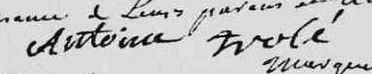 de Leurs parens
Antoine Trolé
Marque